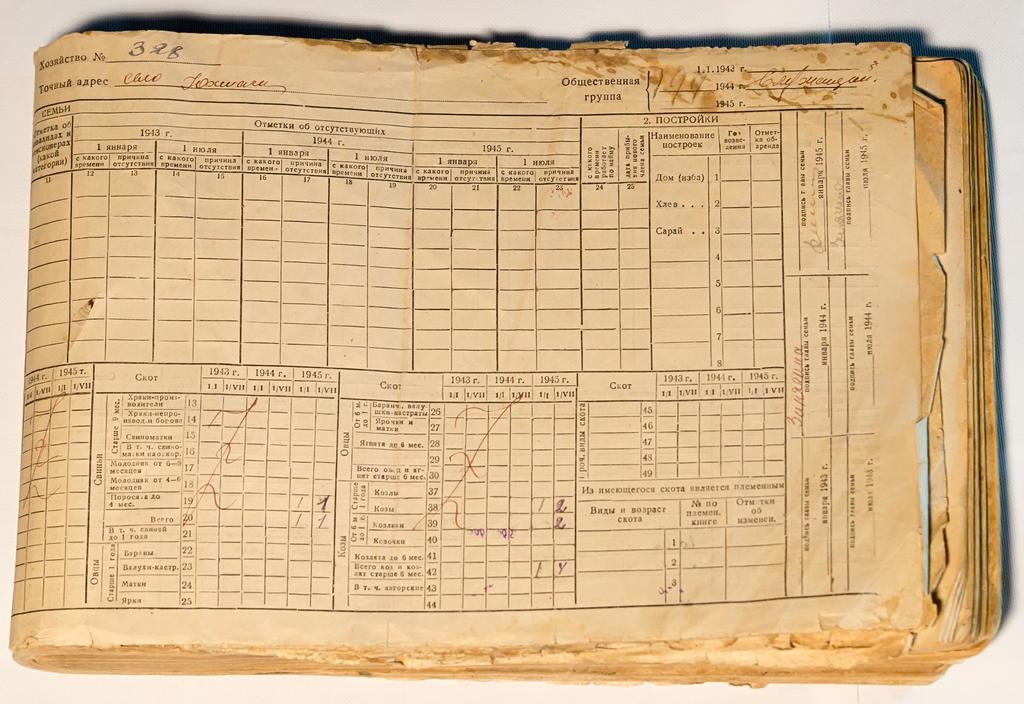 Хозяйство № 328
Точный адрес село
Общественная группа
1.1.1943 г.
1944 г.
1945 г.
СЕМЬИ
Отметки об отсутствующих
2. ПОСТРОЙКИ
1943 г.
1944 г.
1945 г.
1 января 1 июля 1 января 1 июля 1 января 1 июля
с какого времени причина отсутствия с какого времени причина отсутствия с какого времени причина отсутствия с какого времени причина отсутствия с какого времени причина отсутствия с какого времени причина отсутствия
с какого времени работает по найму
Наименование построек
11 12 13 14 15 16 17 18 19 20 21 22 23 24 25
Дом (изба) 1
Хлев . . . 2
Сарай . . 3
4
5
6
7
8
подпись главы семьи
января 1945 г.
подпись главы семьи
июля 1945 г.
подпись главы семьи
января 1944 г.
подпись главы семьи
июля 1944 г.
подпись главы семьи
января 1943 г.
подпись главы семьи
июля 1943 г.
1944 г. 1945 г.
I/I I/VII I/I I/VII
Скот 1943 г. 1944 г. 1945 г.
I/I I/VII I/I I/VII I/I I/VII
Свиньи
Старше 9 мес.
Хряки-производители 13
Хряки-непроизвод. и борова 14
Свиноматки 15
В т. ч. свиноматки на откор. 16
Молодняк от 6—9 месяцев 17
Молодняк от 4—6 месяцев 18
Поросята до 4 мес. 19 1 1
Всего 20 1 1
В т. ч. свиней до 1 года 21
Овцы
Старше 1 года
Бараны 22
Валухи-кастр. 23
Матки 24
Ярки 25
Скот 1943 г. 1944 г. 1945 г.
I/I I/VII I/I I/VII I/I I/VII
Овцы
26
Ярочки и матки 27
Ягнята до 6 мес. 28
29
Всего овец и ягнят старше 6 мес. 30
Козы
Старше 1 года
Козлы 37
Козы 38 1 2
Козлики 39 2
Козочки 40
Козлята до 6 мес. 41
Всего коз и козлят старше 6 мес. 42 1 4
В т. ч. ангорские 43
44
Скот 1943 г. 1944 г. 1945 г.
I/I I/VII I/I I/VII I/I I/VII
Проч. виды скота
45
46
47
48
49
Из имеющегося скота является племенным
Виды и возраст скота
№ по племен. книге
Отметки об изменен.
1
2
3